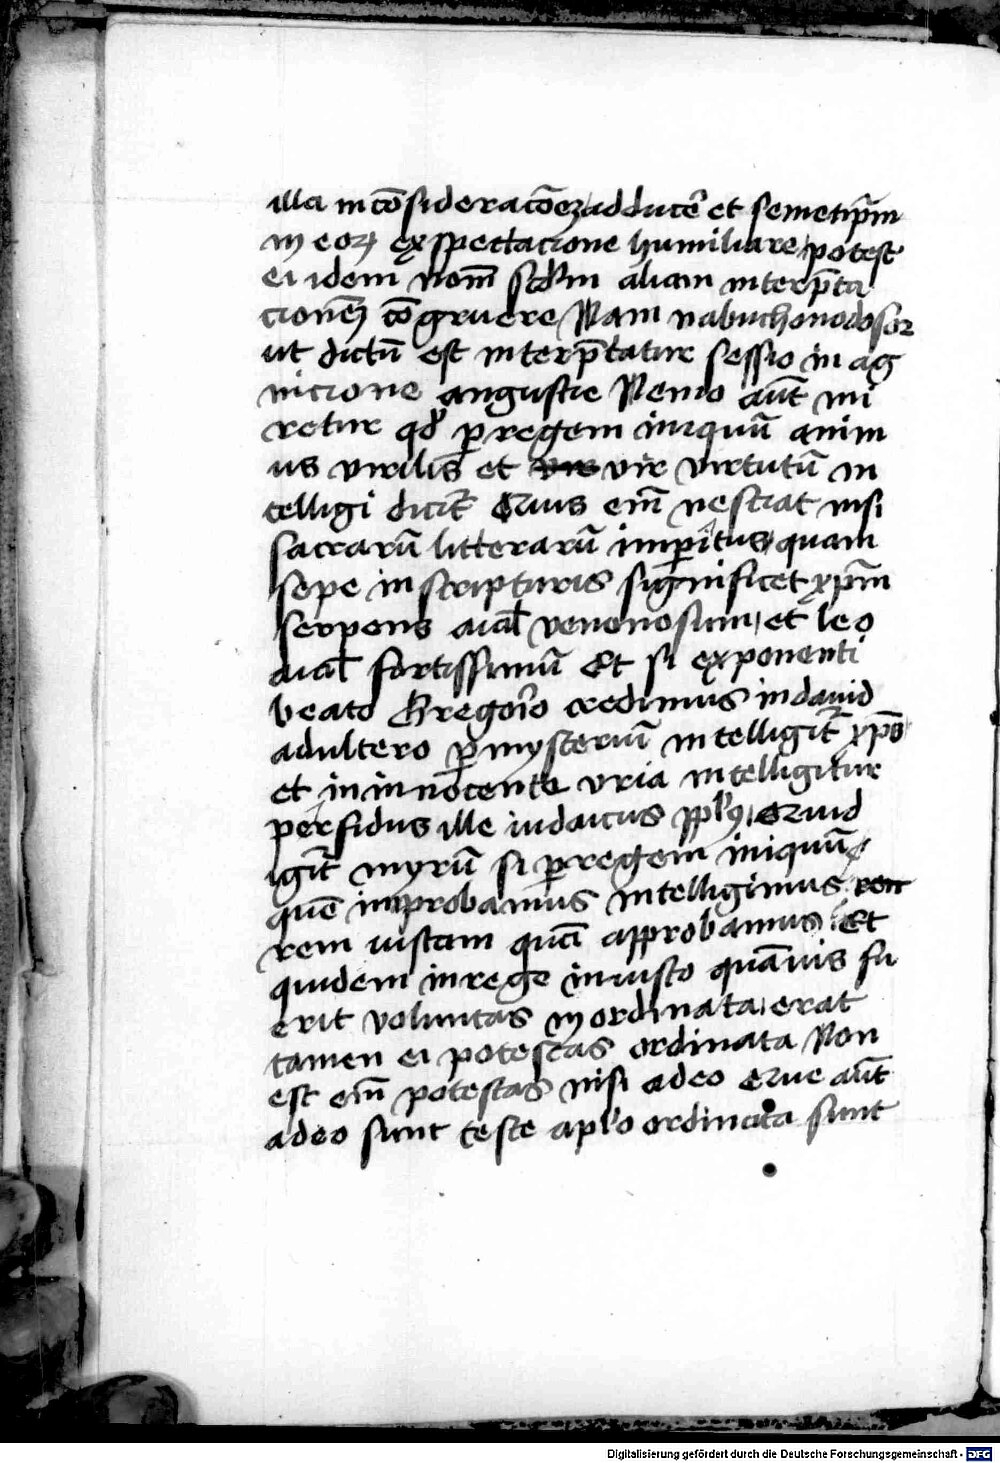 illa in cōsideracōeꝫ adducer̄ et semetip̄m
in eoꝝ exspectacione humiliare potest
ei idem nom̄ scd̄m aliam interp̄ta
cionēꝫ cōgruere Nam nabuchonodosor
ut dictū est interp̄tatur sessio in ag
nicione angustie Nemo aūt mi
retur qđ ꝑ regem iniquū anim
us virilis et vir virtutū in
telligi dicit̄ Quis em̄ nesciat nisi
sacrarū litterarū imperitus quam
sepe in scripturis significet xp̄m
serpens aīal venenosum et leo
aīal fortissimū Et si exponenti
beato Gregorio credimus in dauid
adultero ꝑ mysteriū intelligit̄ xp̄s
et in innocente vria intelligitur
perfidus ille iudaicus ppl̄ꝰ Quid
igit̄ myrū si ꝑ regem iniquū
quē improbamus intelligimus rem
rem iustam quā approbamus Et
quidem in rege iniusto quāuis fu
erit voluntas inordinata erat
tamen ei potestas ordinata Non
est em̄ potestas nisi a deo Que aūt
a deo sunt teste ap̄lo ordinata sunt
Digitalisierung gefördert durch die Deutsche Forschungsgemeinschaft - DFG